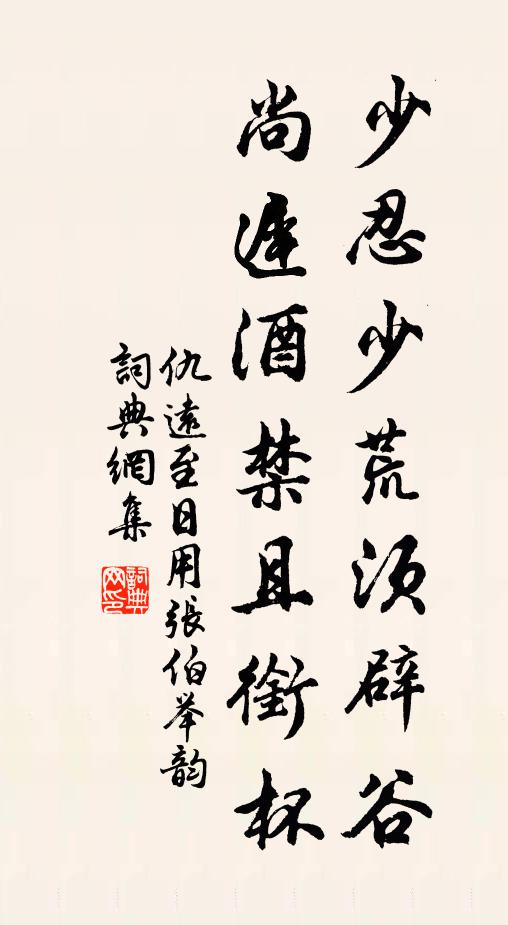 少忍少荒须辟谷
尚遲酒禁且銜杯
仇遠至日用張伯举韵
詞典網集
詞典
网印